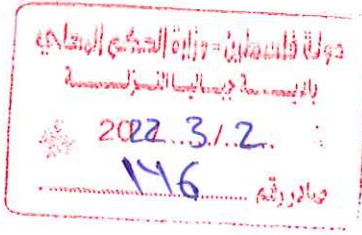 دولة فلسطين - وزارة الحكم المحلي
بلديــة جباليا النزلــة
2022 . 3 . / . 2 .
صادر رقم 146